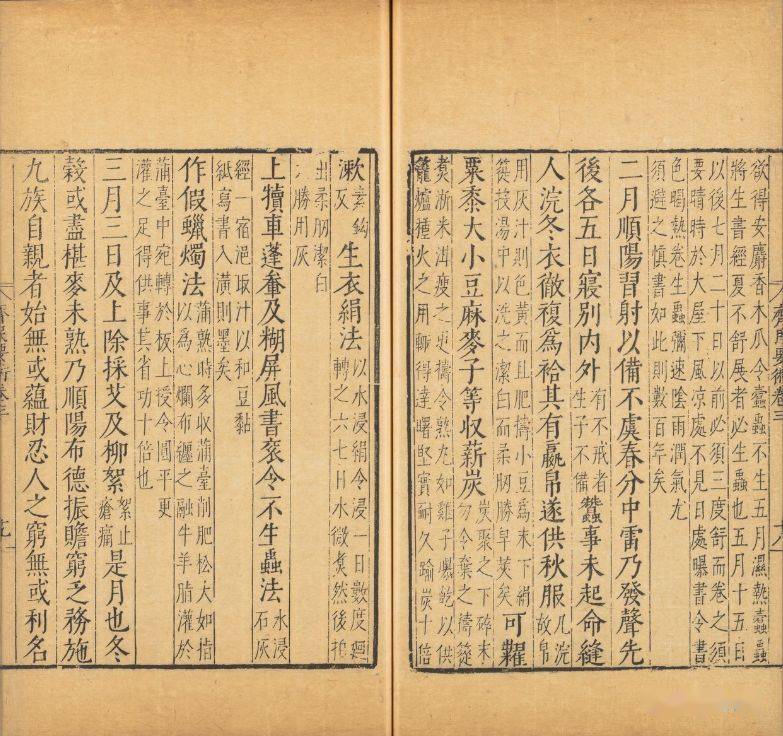 欲得安麝香木瓜令蠹蟲不生五月濕熱蠹蟲
將生書經夏不舒展者必生蟲也五月十五日
以後七月二十日以前必須三度舒而卷之須
要晴時於大屋下風凉處不見日處曝書令書
色暍熱卷生蟲彌速陰雨潤氣尤
須避之慎書如此則數百年矣
二月順陽習射以備不虞春分中雷乃發聲先
後各五日寢別內外有不戒者生子不備蠶事未起命縫
人浣冬衣徹複爲袷其有嬴帛遂供秋服凡浣故帛
用灰汁則色黃而且肥擣小豆爲末下絹
簁投湯中以洗之潔白而柔肕勝皁莢矣可糶
粟黍大小豆麻麥子等収薪炭炭聚之下碎末勿令棄之擣簁
煑淅米泔溲之更擣令熟丸如雞子曝乾以供
籠爐種火之用輒得達曙堅實耐久踰炭十倍
齊民要術卷三
漱素鉤反生衣絹法以水浸絹令浸一日數度廻轉之六七日水微臭然後拍
出柔肕潔白
勝用灰
上犢車蓬軬及糊屏風書袠令不生蟲法水浸石灰
經一宿浥取汁以和豆黏
紙寫書入潢則黑矣
作假蠟燭法蒲熟時多収蒲臺削肥松大如指以爲心爛布纏之融牛羊脂灌於
蒲臺中宛轉於板上挼令圓平更
灌之足得供事其省功十倍也
三月三日及上除採艾及柳絮絮止瘡痛是月也冬
糓或盡椹麥未熟乃順陽布德振贍窮乏務施
九族自親者始無或蘊財忍人之窮無或利名